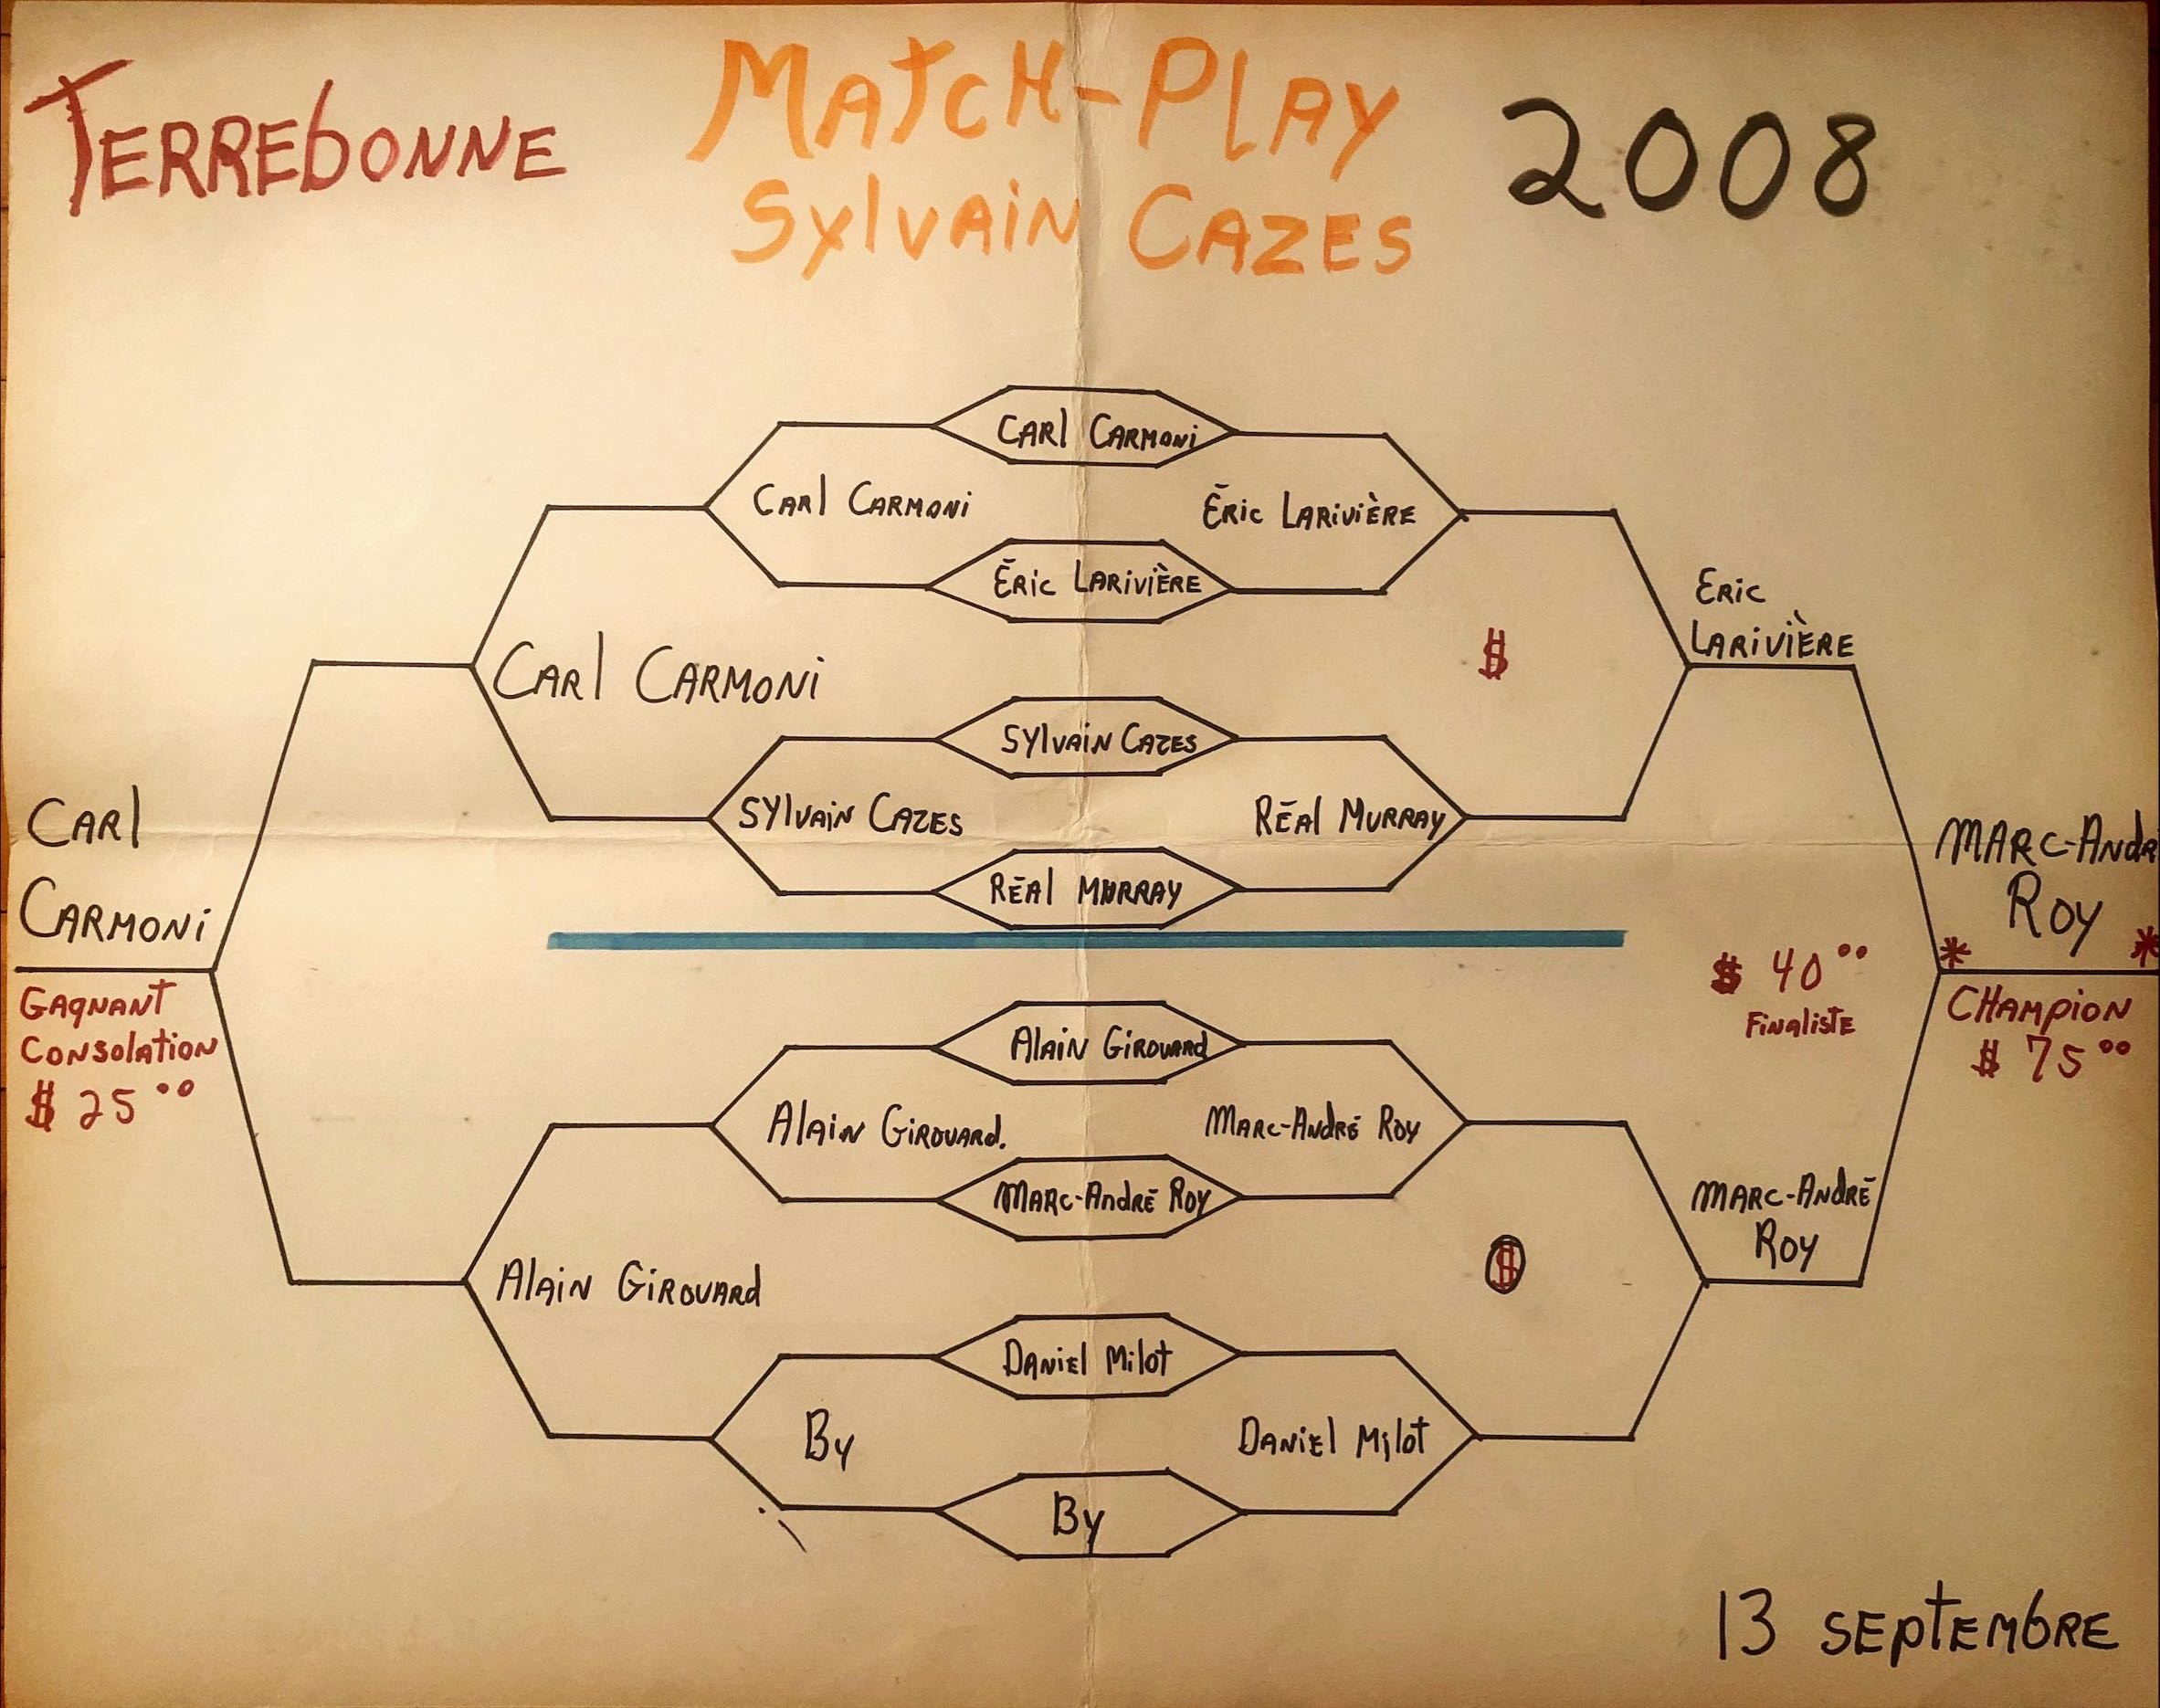 TERREBONNE
MATCH-PLAY
SYLVAIN CAZES
2008
CARL CARMONI
CARL CARMONI
ÉRIC LARIVIÈRE
ÉRIC LARIVIÈRE
ERIC
LARIVIÈRE
$
CARL CARMONI
SYLVAIN CAZES
SYLVAIN CAZES
RÉAL MURRAY
RÉAL MURRAY
CARL
CARMONI
GAGNANT
CONSOLATION
$ 25 00
MARC-ANDR
ROY
* *
CHAMPION
$ 75 00
$ 40 00
FINALISTE
ALAIN GIROUARD
ALAIN GIROUARD.
MARC-ANDRÉ ROY
MARC-ANDRÉ ROY
MARC-ANDRÉ
ROY
$
ALAIN GIROUARD
DANIEL MILOT
BY
DANIEL MILOT
BY
13 SEPTEMBRE